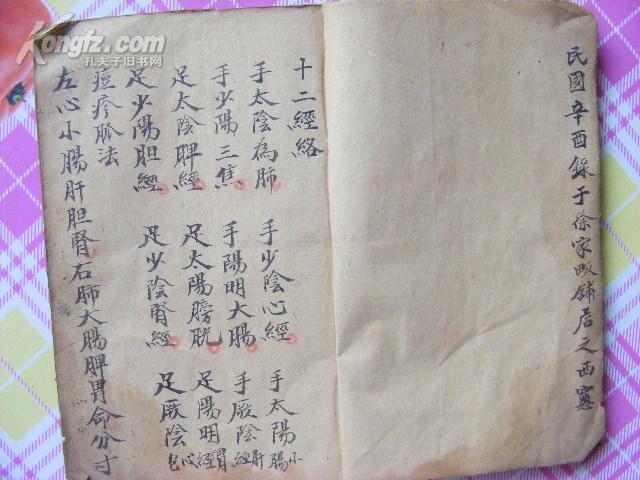 Kongfz.com
孔夫子旧书网
民國辛酉録于徐家畈舖店之西窓
十二經絡
手太陰為肺 手少陰心經 手太陽小腸
手少陽三焦 手陽明大腸 手厥陰肝經
足太陰脾經 足太陽膀胱 足陽明胃經
足少陽胆經 足少陰腎經 足厥陰心包
痘疹脈法
左心小腸肝胆腎右肺大腸脾胃命分寸